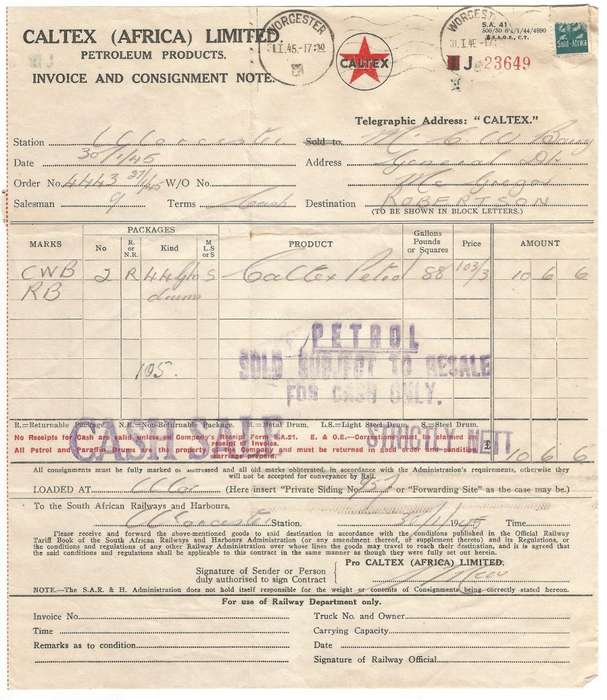 CALTEX (AFRICA) LIMITED
PETROLEUM PRODUCTS.
INVOICE AND CONSIGNMENT NOTE.
WORCESTER
31.I.45-17:30
CALTEX
WORCEST
S.A. 41
Suid-Afrika
J 23649
Telegraphic Address: "CALTEX."
Station Worcester Sold to
Date 30/1/45 Address General Dlr
Order No. 4443 27/1/45 W/O No. McGregor
Salesman 9 Terms Cash Destination ROBERTSON
(TO BE SHOWN IN BLOCK LETTERS.)
MARKS PACKAGES PRODUCT Gallons Pounds or Squares Price AMOUNT
No R. or N.R. Kind M LS or S
CWB 2 R 44 Gln S Caltex Petrol 88 103/3 10 6 6
RB drums
PETROL
SOLD SUBJECT TO RESALE
FOR CASH ONLY.
105.
R.=Returnable Package. N.R.=Non-Returnable Package. M.=Metal Drum. L.S.=Light Steel Drum. S.=Steel Drum.
No Receipts for Cash are valid unless on Company's Receipt Form S.A.21. E. & O.E.—Corrections must be claimed on receipt of Invoice.
All Petrol and Paraffin Drums are the property of the Company and must be returned in good order and condition, carriage prepaid.
CASH SALE
STRICTLY NETT
£ 10 6 6
All consignments must be fully marked or addressed and all old marks obliterated, in accordance with the Administration's requirements, otherwise they
will not be accepted for conveyance by Rail.
LOADED AT Wor (Here insert "Private Siding No. 157 or "Forwarding Site" as the case may be.)
To the South African Railways and Harbours,
Worcester Station. 31/1/1945 Time
Please receive and forward the above-mentioned goods to said destination in accordance with the conditions published in the Official Railway
Tariff Book of the South African Railways and Harbours Administration (or any amendment thereof, or supplement thereto) and its Regulations, or
the conditions and regulations of any other Railway Administration over whose lines the goods may travel to reach their destination, and it is agreed that
the said conditions and regulations shall be applicable to this contract in the same manner as though they were fully set out herein.
Pro CALTEX (AFRICA) LIMITED.
Signature of Sender or Person
duly authorised to sign Contract
NOTE.—The S.A.R. & H. Administration does not hold itself responsible for the weight or contents of Consignments being correctly stated hereon.
For use of Railway Department only.
Invoice No. Truck No. and Owner
Time Carrying Capacity
Remarks as to condition Date
Signature of Railway Official